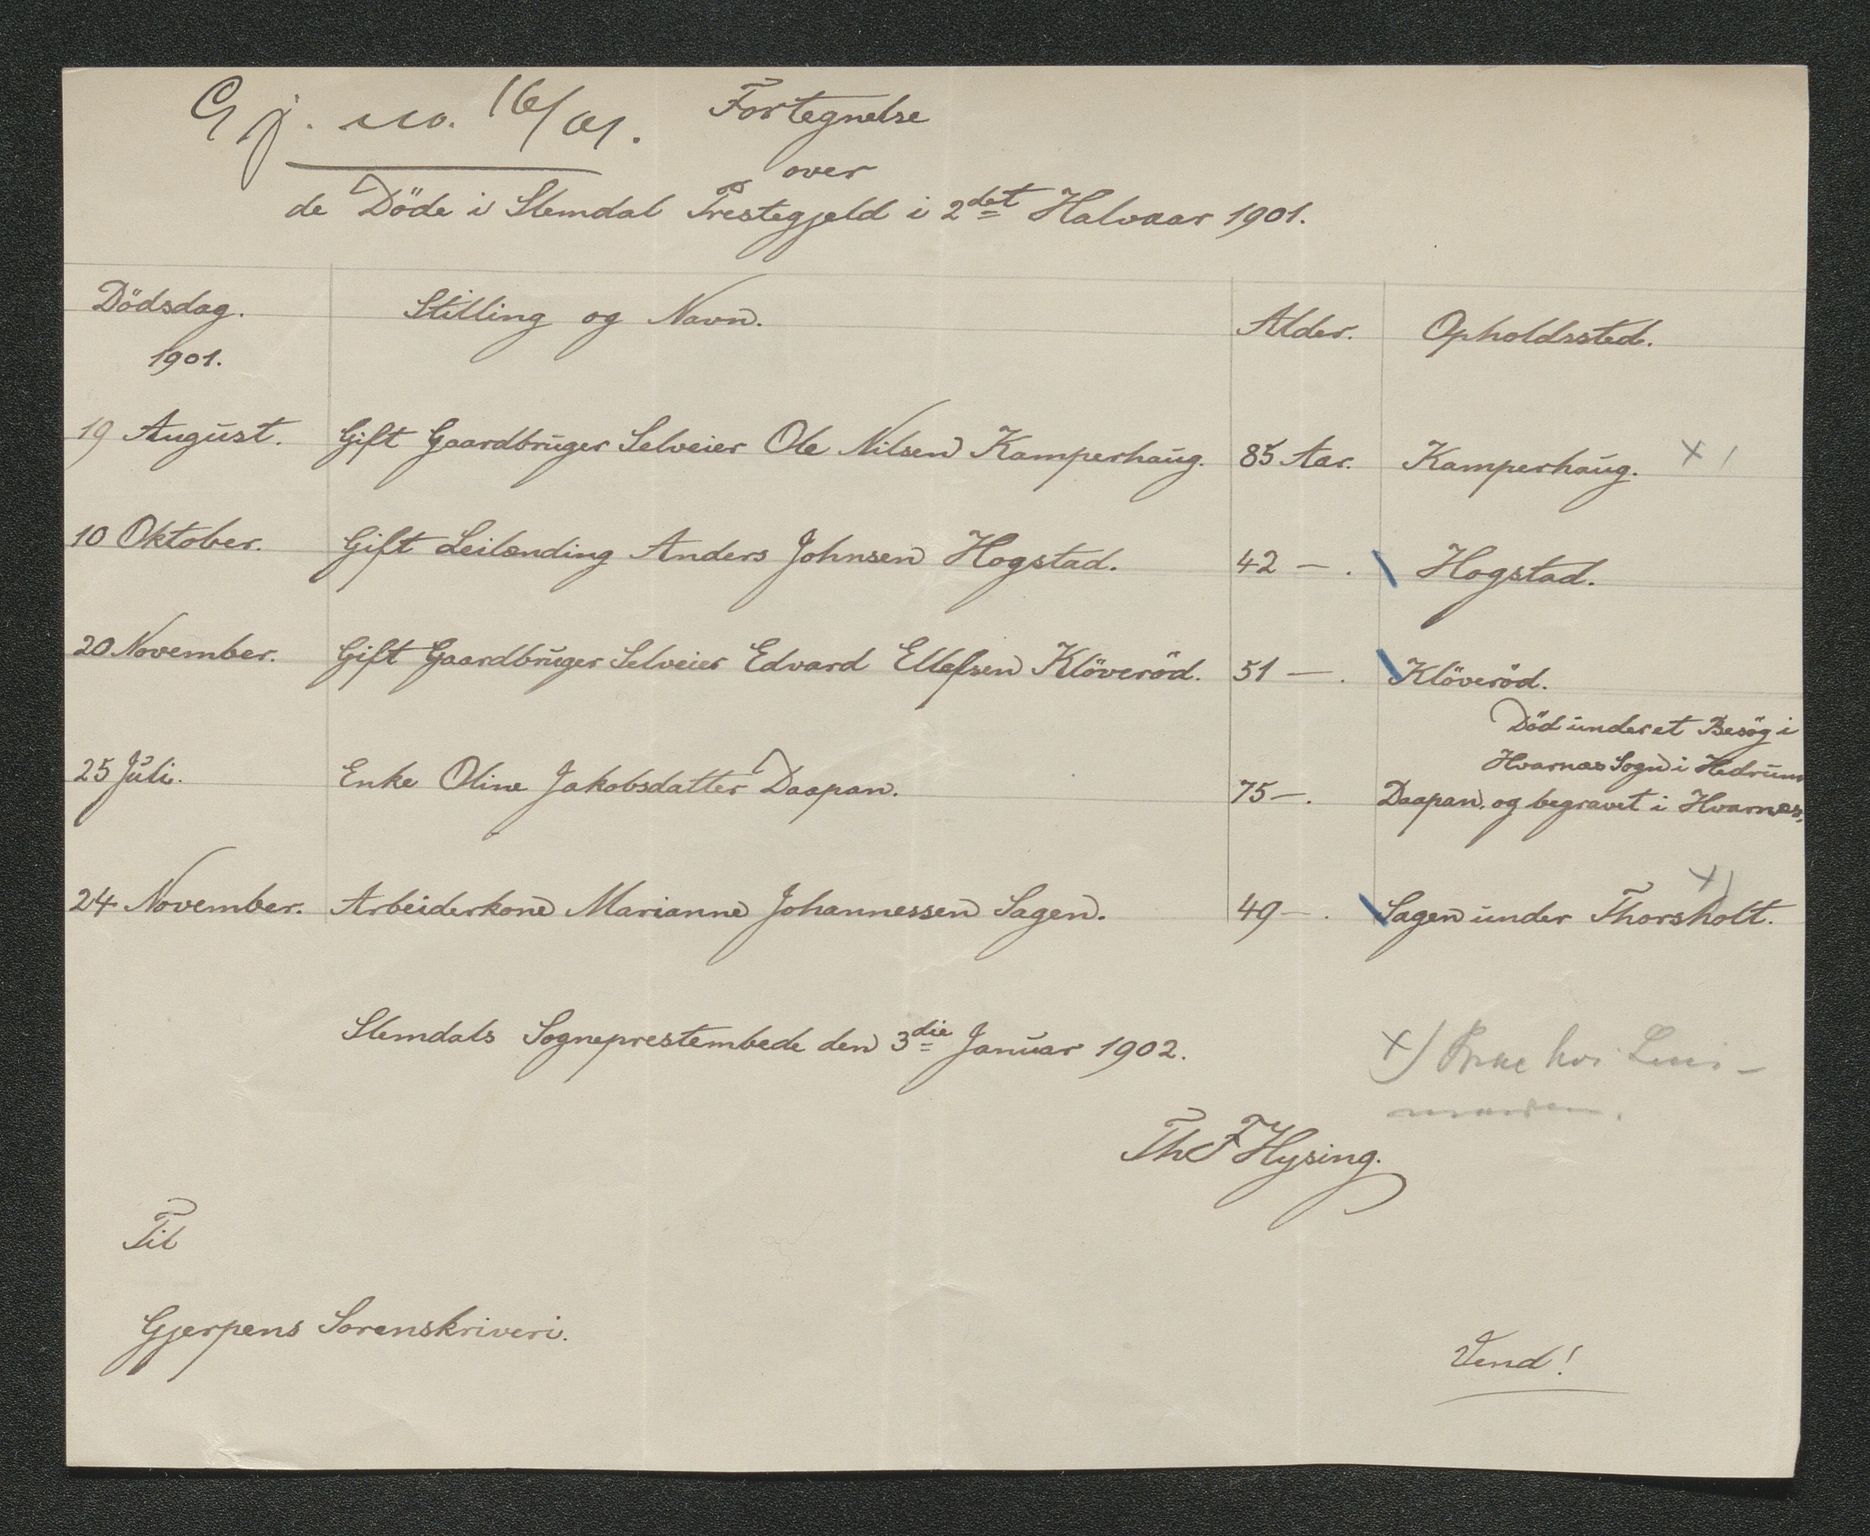 Gj. no. 16/01.
Fortegnelse
over
de Döde i Slemdal Prestegjeld i 2det Halvaar 1901.
Dödsdag. Stilling og Navn. Alder. Opholdssted.
1901.
19 August. Gift Gaardbruger Selveier Ole Nilsen Kamperhaug. 85 Aar. Kamperhaug. x)
10 Oktober. Gift Leilænding Anders Johnsen Hogstad. 42 — . Hogstad.
20 November. Gift Gaardbruger Selveier Edvard Ellefsen Klöveröd. 51 — . Klöveröd.
Död under et Besög i
Hvarnæs Sogn i Hedrum
25 Juli. Enke Oline Jakobsdatter Daapan. 75 —. Daapan. og begravet i Hvarnæs.
24 November. Arbeiderkone Marianne Johannessen Sagen. 49 — . Sagen under Thorsholt. x)
Slemdals Sogneprestembede den 3die Januar 1902.
x)
Th F Hysing.
Til
Gjerpens Sorenskriveri.
Vend!